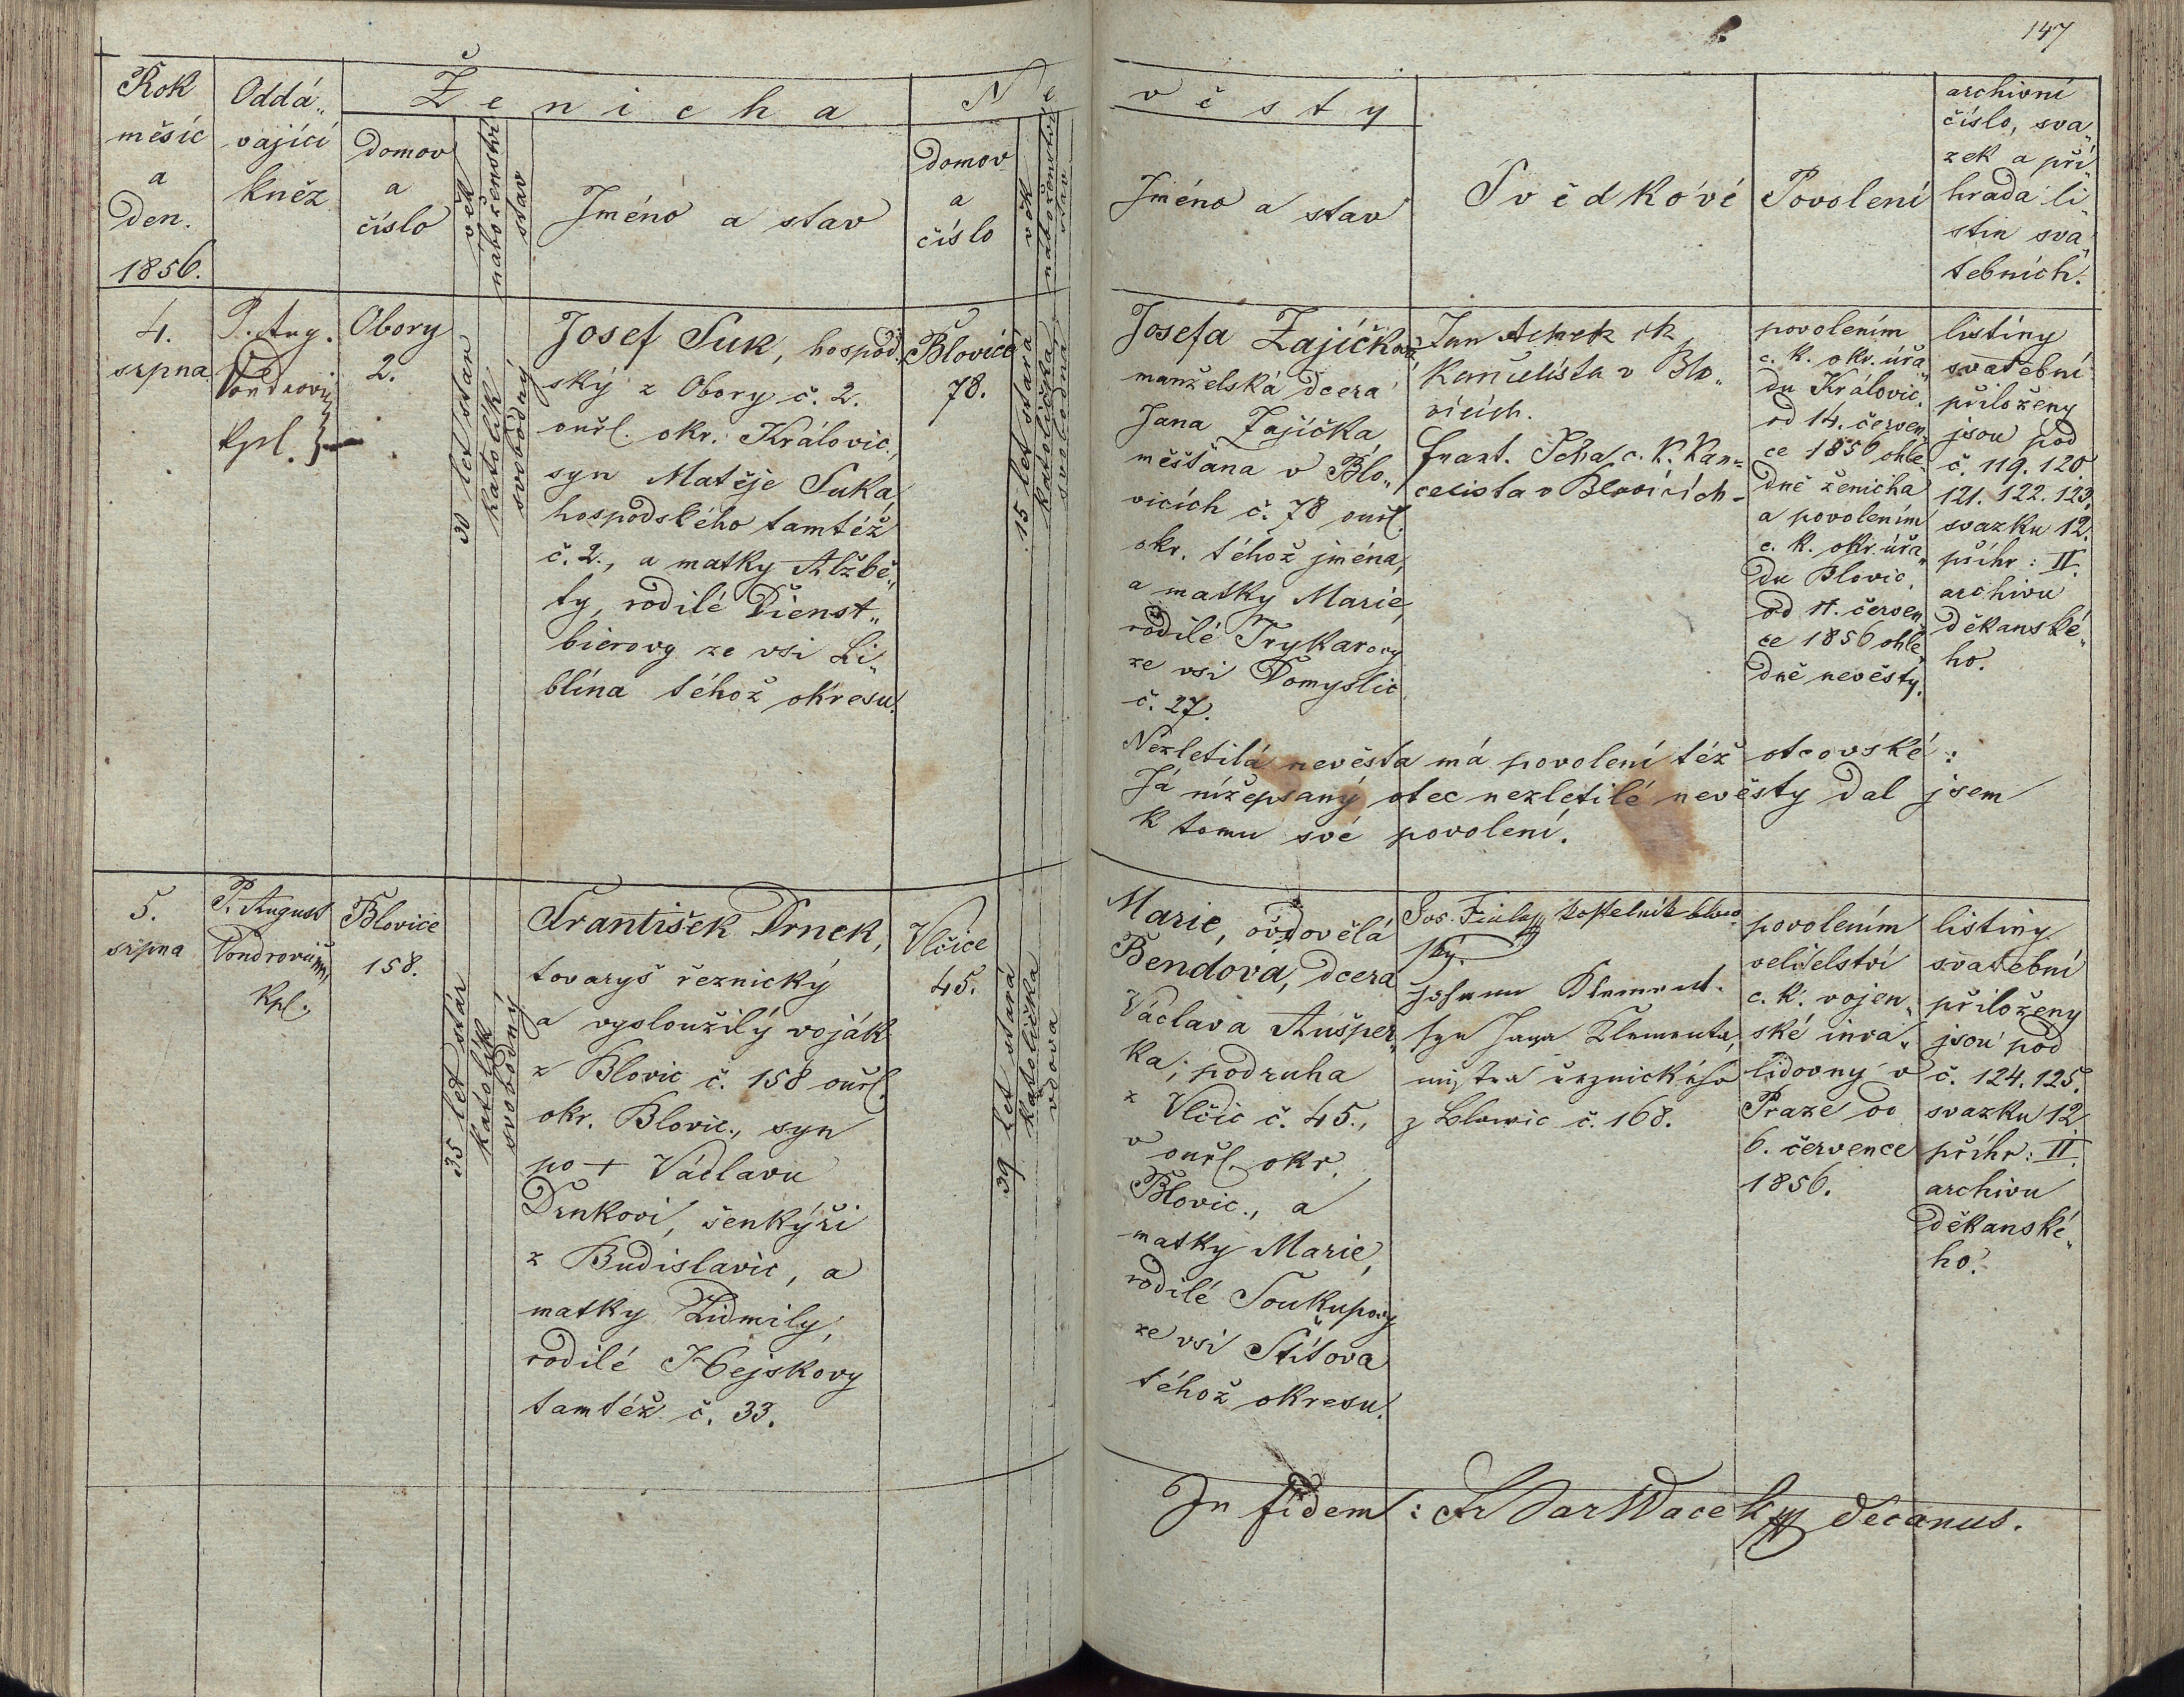 147
Ženicha
Nevěsty
Rok
měsíc
a
den.
1856.
Oddá„
vající
kněz
domov
a
číslo
věk
náboženství
stav
Jméno a stav
domov
a
číslo
věk
náboženství
stav
Jméno a stav
Svědkové
Povolení
archivní
číslo, sva„
zek a při„
hrada li„
stin sva„
tebních.
4.
srpna
P. Aug.
Kpl.
Obory
2.
30 let stár
katolík
svobodný
Josef Suk, hospod„
ský z Obory č. 2.
ouřl. okr. Královic.,
syn Matěje Suka
hospodského tamtéž
č. 2., a matky Alžbě„
ty, rodilé Dienst„
bierovy ze vsi Li„
blína téhož okresu.
Blovice
78.
15 let stará
katolička
svobodná
Josefa Zajíčková
manželská dcera
Jana Zajíčka
měšťana v Blo„
vicích č. 78 ouřl.
okr. téhož jména,
a matky Marie,
rodilé Trykarovy
ze vsi Domyslic
č. 27.
Jan
Kancelista v Blo„
vicích.
Frant. Scha c. k. Kan=
celista v Blovicích
povolením
c. k. okr. úřa„
du Královic.
od 14. červen„
ce 1856 ohle„
dně ženicha
a povolením
c. k. okr. úřa„
du Blovic.
od 11. červen„
ce 1856 ohle„
dně nevěsty.
listiny
svatební
přiloženy
jsou pod
č. 119. 120
121. 122. 123.
svazku 12.
příhr: II.
archivu
děkanské„
ho.
Nezletilá nevěsta má povolení též otcovské:
Já nížepsaný otec nezletilé nevěsty dal jsem
k tomu své povolení.
5.
srpna
P. August
Kpl.
Blovice
158.
35 let stár
katolík
svobodný
František Drnek,
tovaryš řeznický
a vysloužilý voják
z Blovic č. 158 ouřl.
okr. Blovic., syn
po + Václavu
Drnkovi, šenkýři
z Budislavic, a
matky Lidmily,
rodilé Hejskovy
tamtéž č. 33.
Vlčice
45.
39 let stará
katolička
vdova
Marie, ovdovělá
Bendová, dcera
Václava Aušper„
ka, podruha
z Vlčic č. 45.,
v ouřl. okr.
Blovic., a
matky Marie,
rodilé Soukupovy
ze vsi Štítova
téhož okresu.
Jos. Fiala kostelník blovi
ský.
Johann Klement.
syn Jana Klementa,
mistra řeznického
z Blowic č. 168.
povolením
velitelství
c. k. vojen„
ské inva„
lidovny v
Praze od
6. července
1856.
listiny
svatební
přiloženy
jsou pod
č. 124. 125.
svazku 12
příhr: II.
archivu
děkanské„
ho.
In fidem: Decanus.